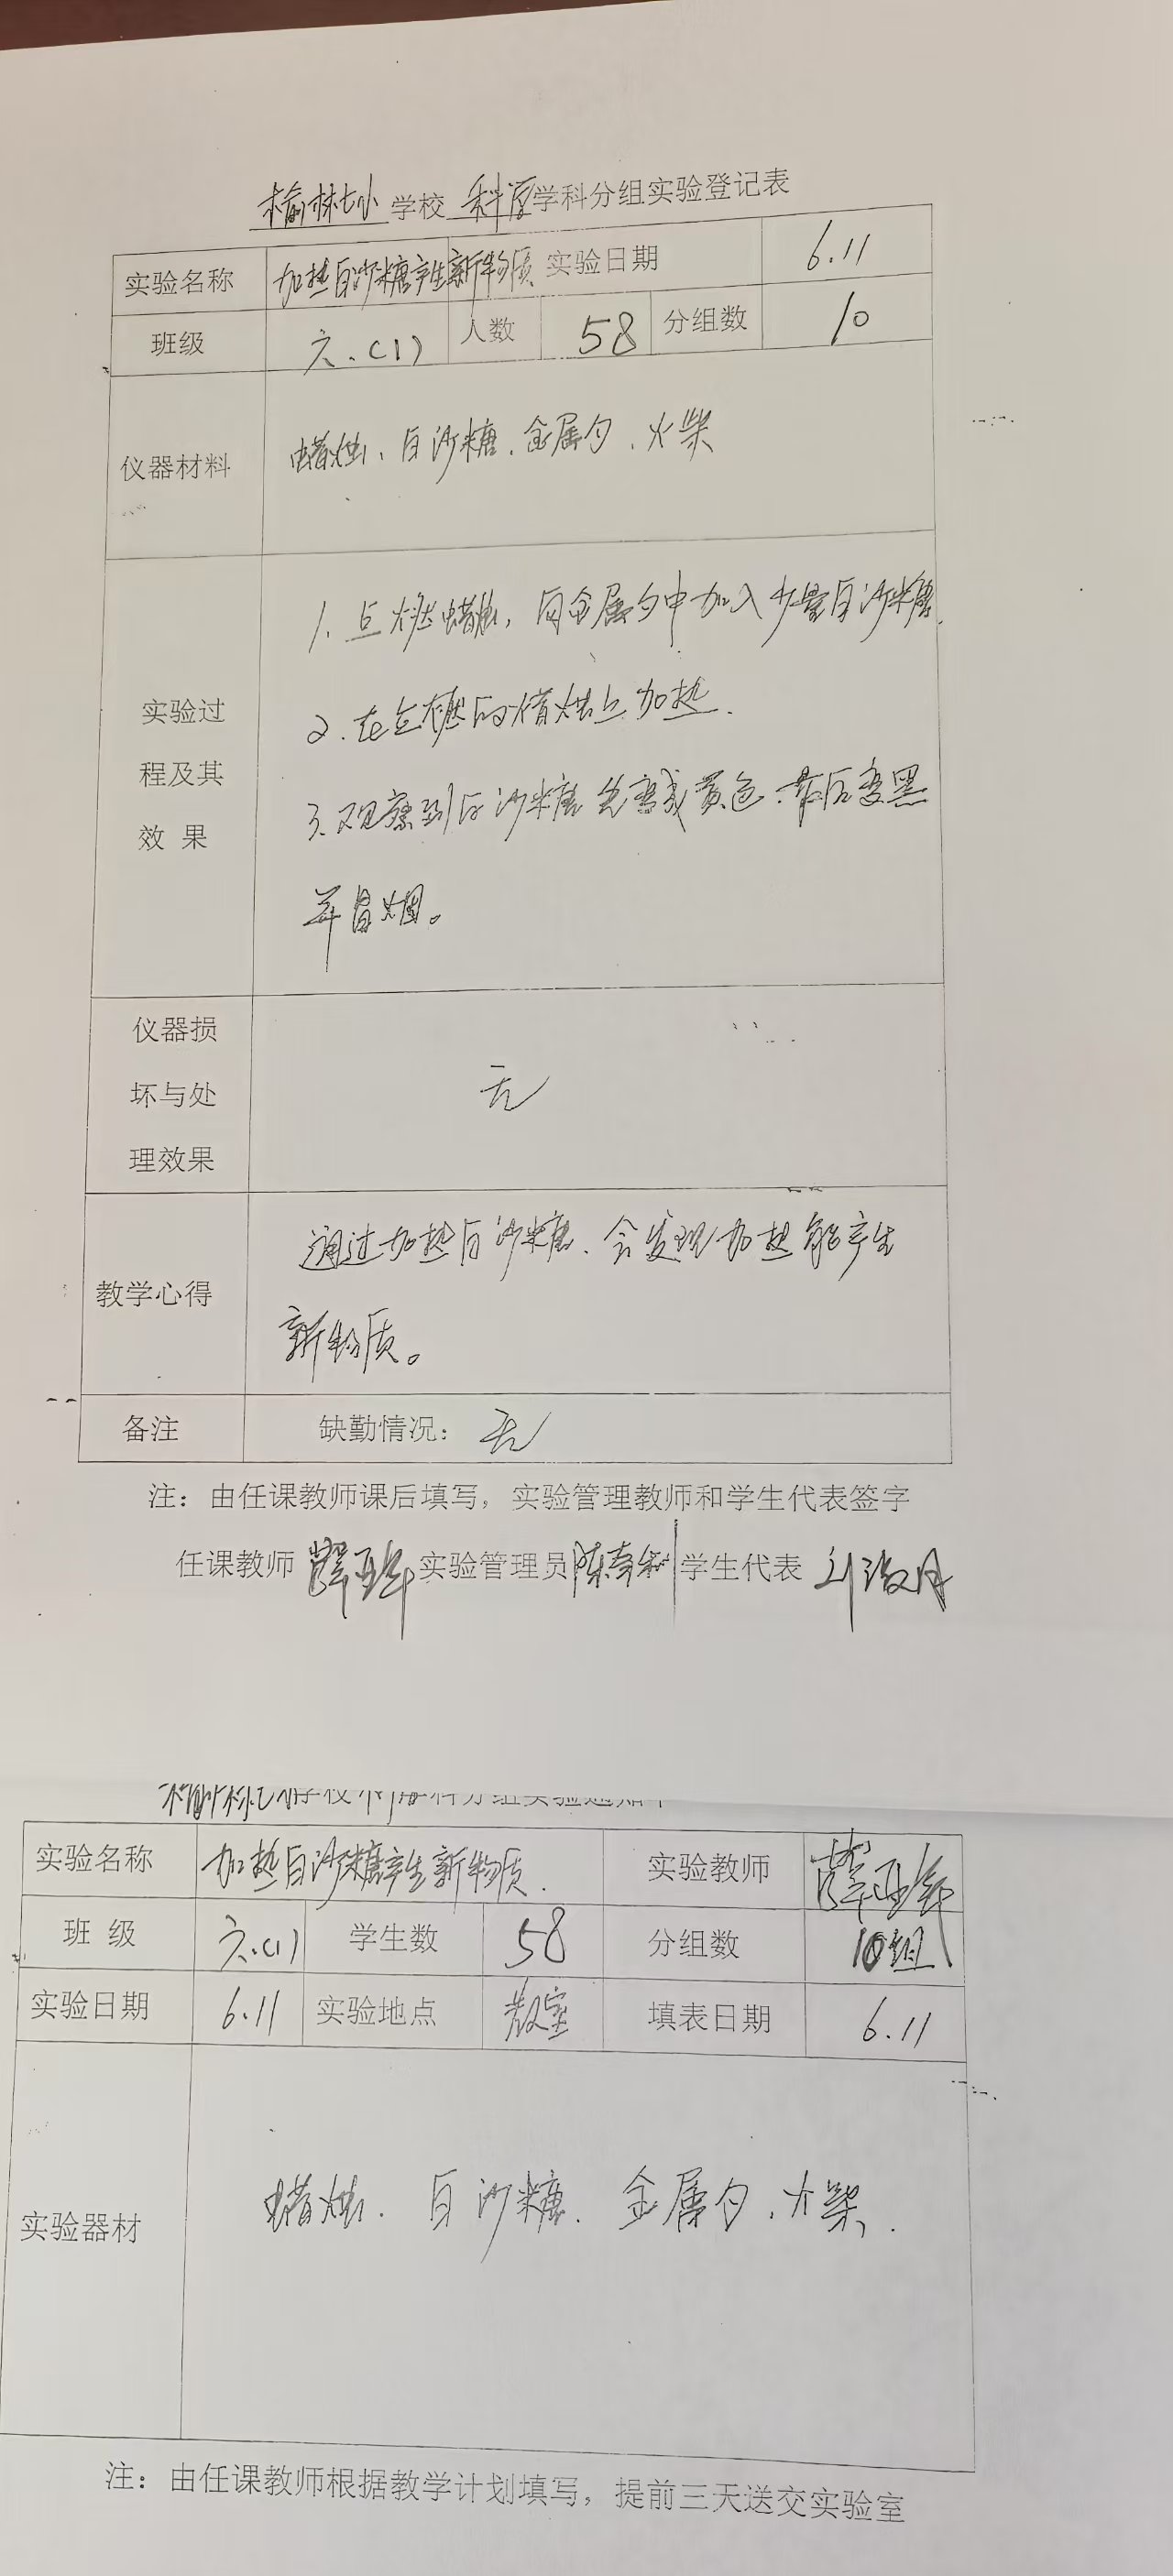 榆林七小学校 科学学科分组实验登记表
实验名称 加热白沙糖产生新物质 实验日期 6.11
班级 六.(1) 人数 58 分组数 10
仪器材料 蜡烛、白沙糖、金属勺、火柴
1. 点燃蜡烛，向金属勺中加入少量白沙糖.
实验过程及其效果 2. 在点燃的蜡烛上加热.
3. 观察到白沙糖先变成黄色.最后变黑
并冒烟。
仪器损坏与处理效果 无
教学心得 通过加热白沙糖、会发现加热能产生
新物质。
备注 缺勤情况：无
注：由任课教师课后填写，实验管理教师和学生代表签字
任课教师 薛 实验管理员 陈 学生代表 刘
榆林七小学校科学学科分组实验通知单
实验名称 加热白沙糖产生新物质. 实验教师 薛
班 级 六.(1) 学生数 58 分组数 10组
实验日期 6.11 实验地点 教室 填表日期 6.11
实验器材 蜡烛. 白沙糖. 金属勺、火柴.
注：由任课教师根据教学计划填写，提前三天送交实验室